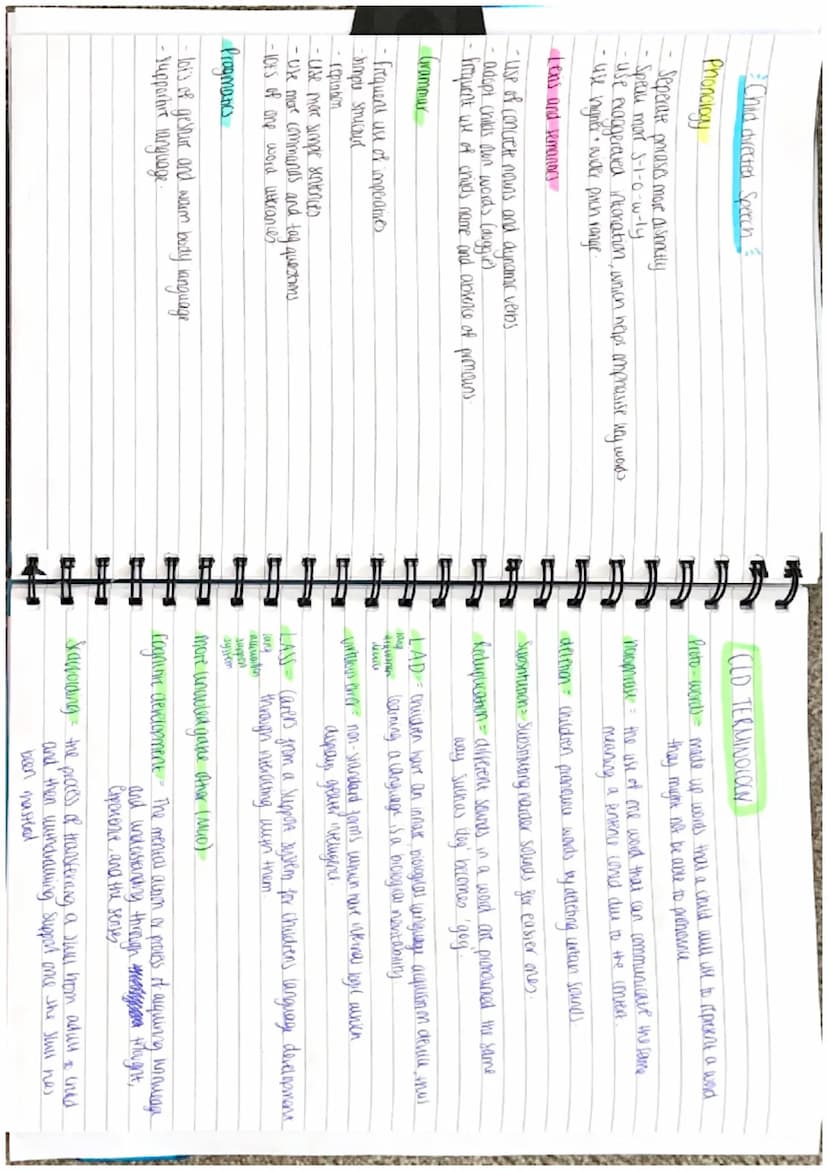 Child directed Speech
Phonology
- Seperate phrases more distinctly
- Speak more s-l-o-w-ly
- use exaggerated intonation, which helps emphasise key words
- use higher + wider pitch range.
Lexis and semantics
- use of concrete nouns and dynamic verbs
- adopt childs own words (doggie)
- frequent use of childs name and absence of pronouns.
Grammar
- frequent use of imperatives
- simple structure
- repition
- use more simple sentences
- use more commands and tag questions
- lots of one word utterances
Pragmatics
- lots of gestur and warm body language
- supportive language.
CLD TERMINOLOGY
Proto-words = made up words that a child will use to represent a word
they might not be able to pronounce
Holophrase = the use of one word that can communicate the same
meaning a sentence could due to the context.
deletion = children pronounce words by deleting certain sounds
Substitution = Substituting harder sounds for easier ones.
Reduplication = different sounds in a word are pronounced the same
way such as 'dog' becomes 'gog'.
LAD = children have an innate, biological language acquisition device, thus
lang acquisition device
learning a language is a biological inevitability
virtuous error = non-standard forms which have internal logic which
displays greater intelligence.
LASS = carers from a support system for childrens language development
lang acquisition support system
through interacting with them
more knowledgeable other (MKO)
Cognitive development = The mental action or process of acquiring knowledge
and understanding through thought,
experience and the senses
Scaffolding = the process of transferring a skill from adult to child
and then withdrawing support once the skill has
been mastered